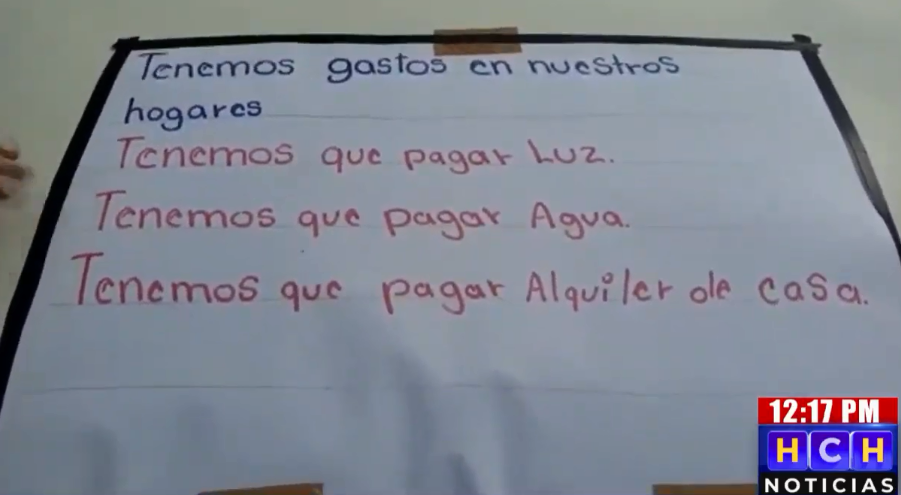 Tenemos gastos en nuestros
hogares
Tenemos que pagar Luz.
Tenemos que pagar Agua.
Tenemos que pagar Alquiler de casa.
12:17 PM
HCH
NOTICIAS